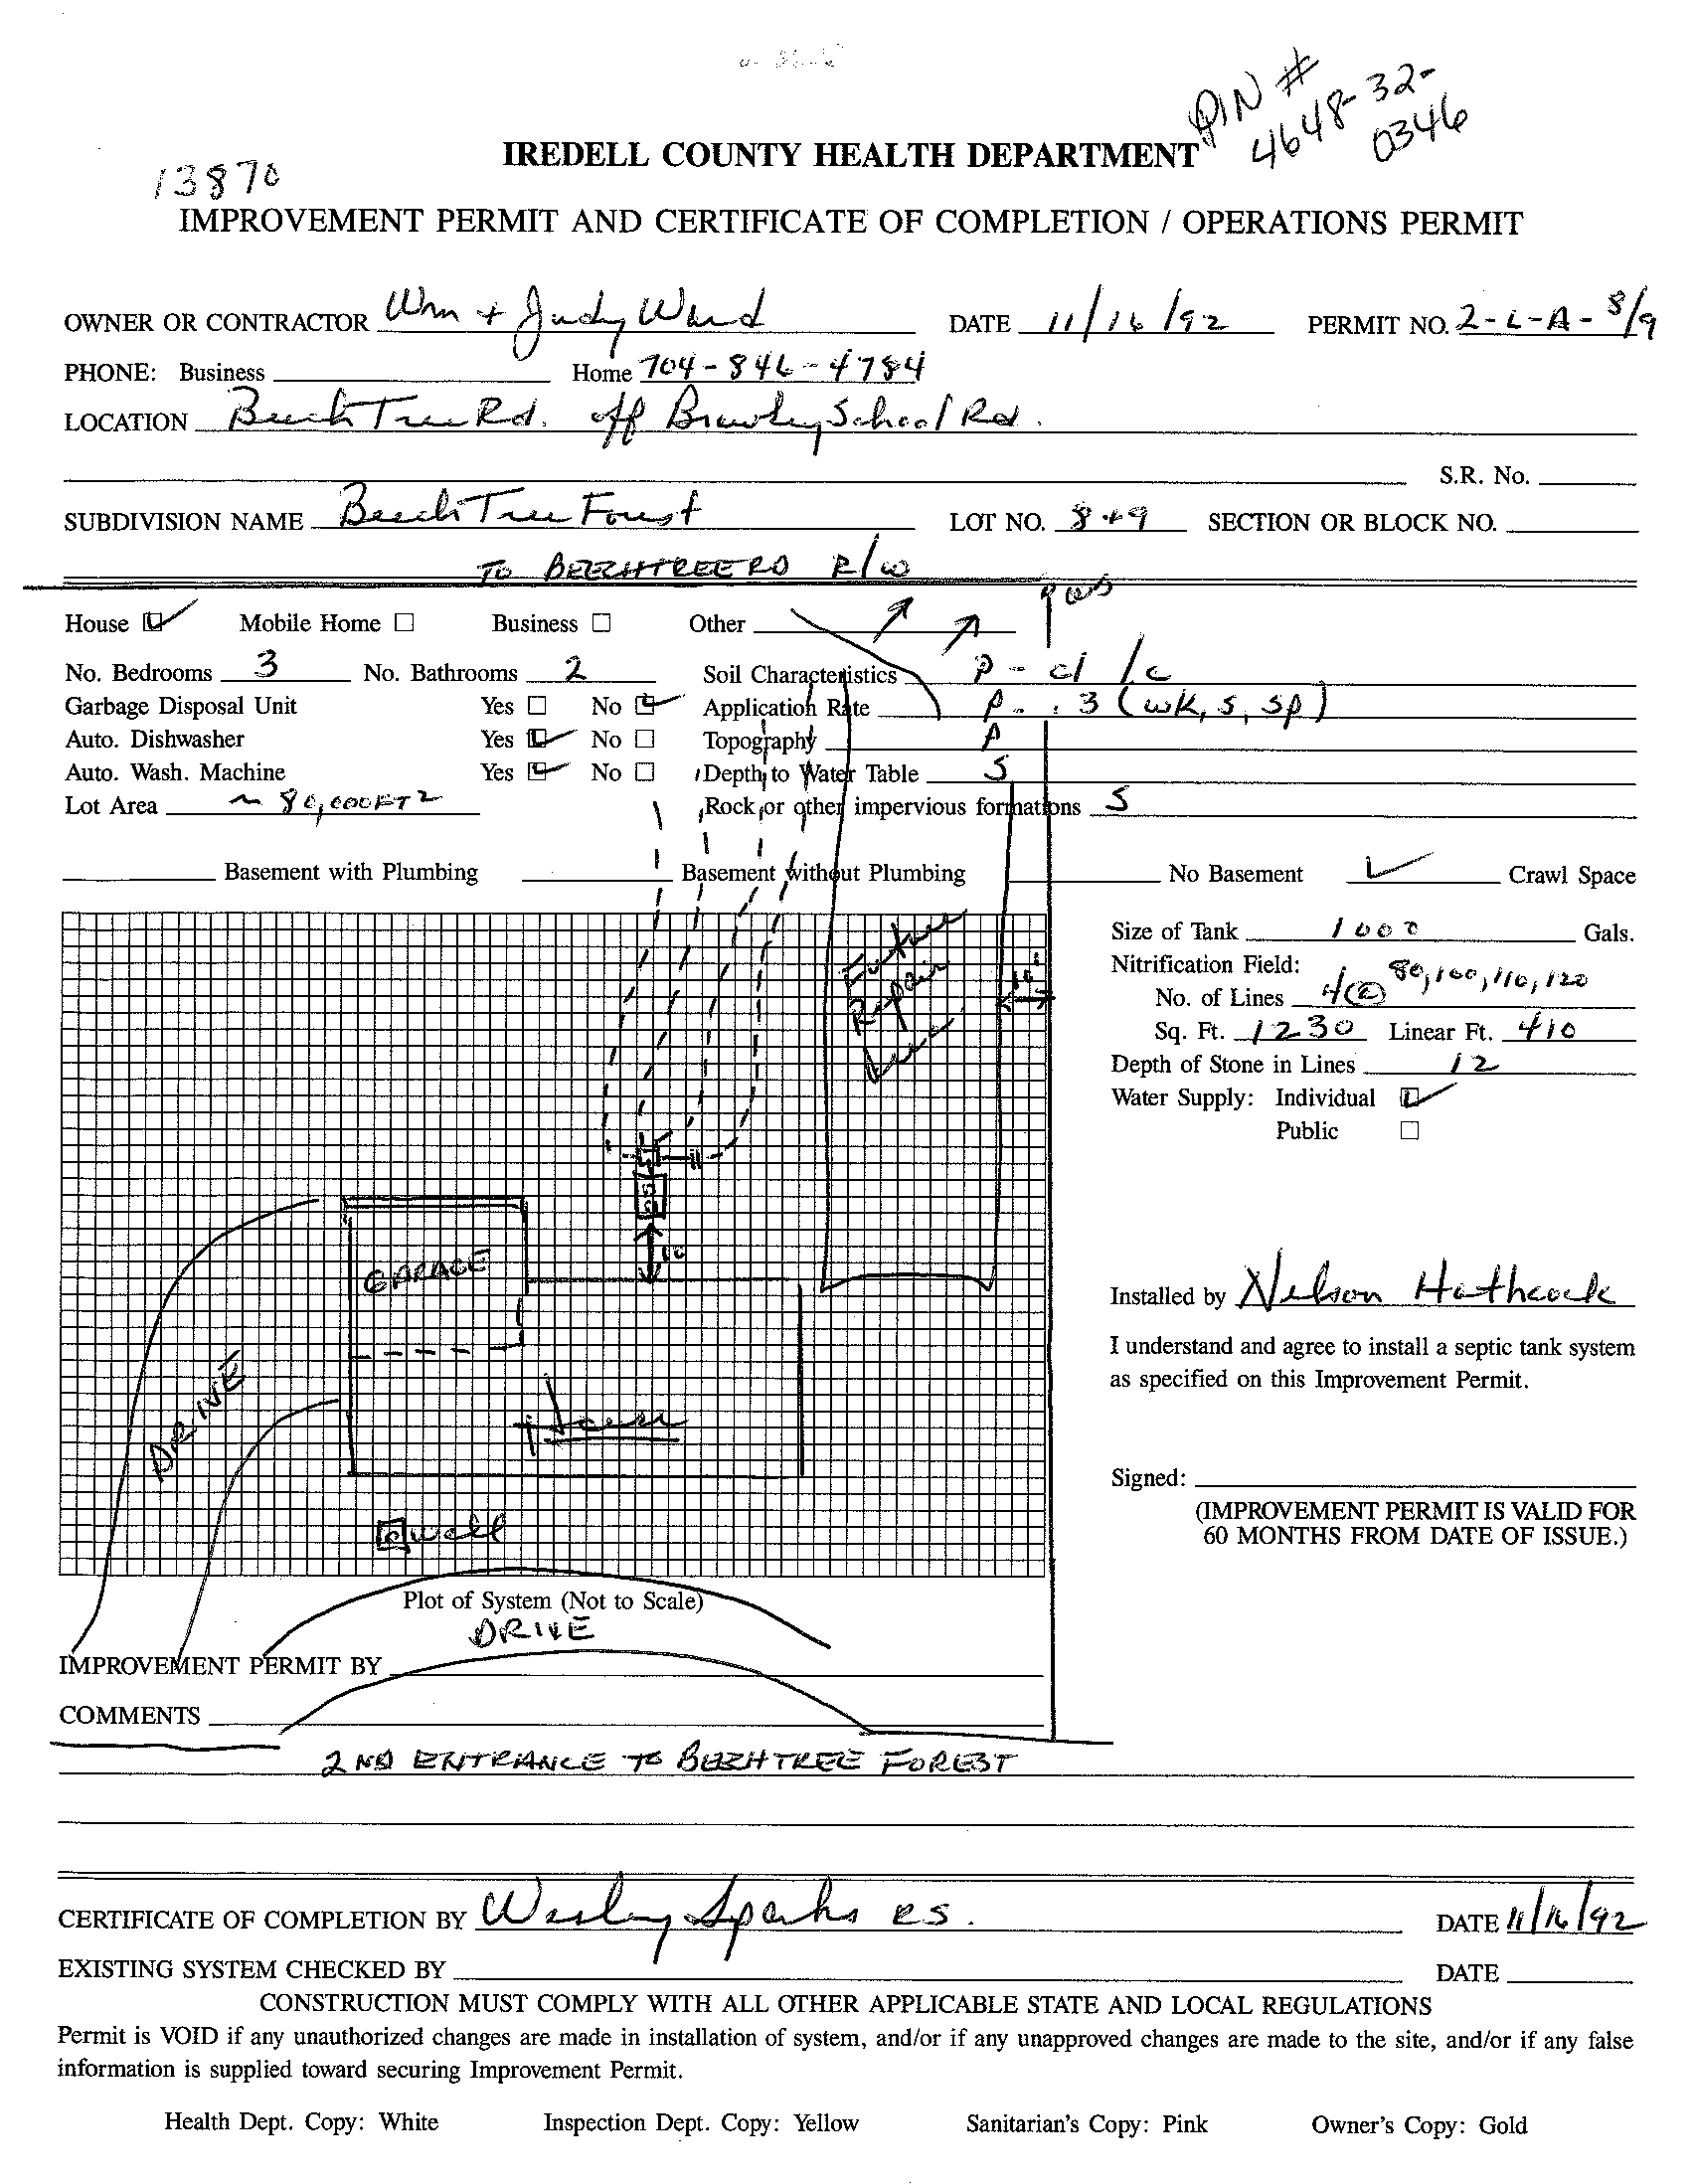 PIN #
4648-32-
0346
IREDELL COUNTY HEALTH DEPARTMENT
13870
IMPROVEMENT PERMIT AND CERTIFICATE OF COMPLETION / OPERATIONS PERMIT
OWNER OR CONTRACTOR Wm + Judy Ward DATE 11/16/92 PERMIT NO. 2-L-A-8/9
PHONE: Business Home 704-846-4784
LOCATION Beech Tree Rd. off Brawley School Rd.
S.R. No.
SUBDIVISION NAME Beech Tree Forest LOT NO. 8+9 SECTION OR BLOCK NO.
TO BEECHTREE RD R/W
House ☑ Mobile Home ☐ Business ☐ Other
No. Bedrooms 3 No. Bathrooms 2 Soil Characteristics P - cl /c
Garbage Disposal Unit Yes ☐ No ☑ Application Rate P - .3 (wk, s, sp)
Auto. Dishwasher Yes ☑ No ☐ Topography P
Auto. Wash. Machine Yes ☑ No ☐ Depth to Water Table S
Lot Area ~ 80,000FT2 Rock or other impervious formations S
Basement with Plumbing Basement without Plumbing No Basement ✓ Crawl Space
Future
Repair
Area
10'
Size of Tank 1000 Gals.
Nitrification Field:
No. of Lines 4 @ 80, 100, 110, 120
Sq. Ft. 1230 Linear Ft. 410
Depth of Stone in Lines 12
Water Supply: Individual ☑
Public ☐
10
GARAGE
DRIVE
House
well
Installed by Nelson Hathcock
I understand and agree to install a septic tank system
as specified on this Improvement Permit.
Signed:
(IMPROVEMENT PERMIT IS VALID FOR
60 MONTHS FROM DATE OF ISSUE.)
Plot of System (Not to Scale)
DRIVE
IMPROVEMENT PERMIT BY
COMMENTS
2ND ENTRANCE TO BEECHTREE FOREST
CERTIFICATE OF COMPLETION BY Wesley Sparks RS. DATE 11/16/92
EXISTING SYSTEM CHECKED BY DATE
CONSTRUCTION MUST COMPLY WITH ALL OTHER APPLICABLE STATE AND LOCAL REGULATIONS
Permit is VOID if any unauthorized changes are made in installation of system, and/or if any unapproved changes are made to the site, and/or if any false
information is supplied toward securing Improvement Permit.
Health Dept. Copy: White Inspection Dept. Copy: Yellow Sanitarian's Copy: Pink Owner's Copy: Gold